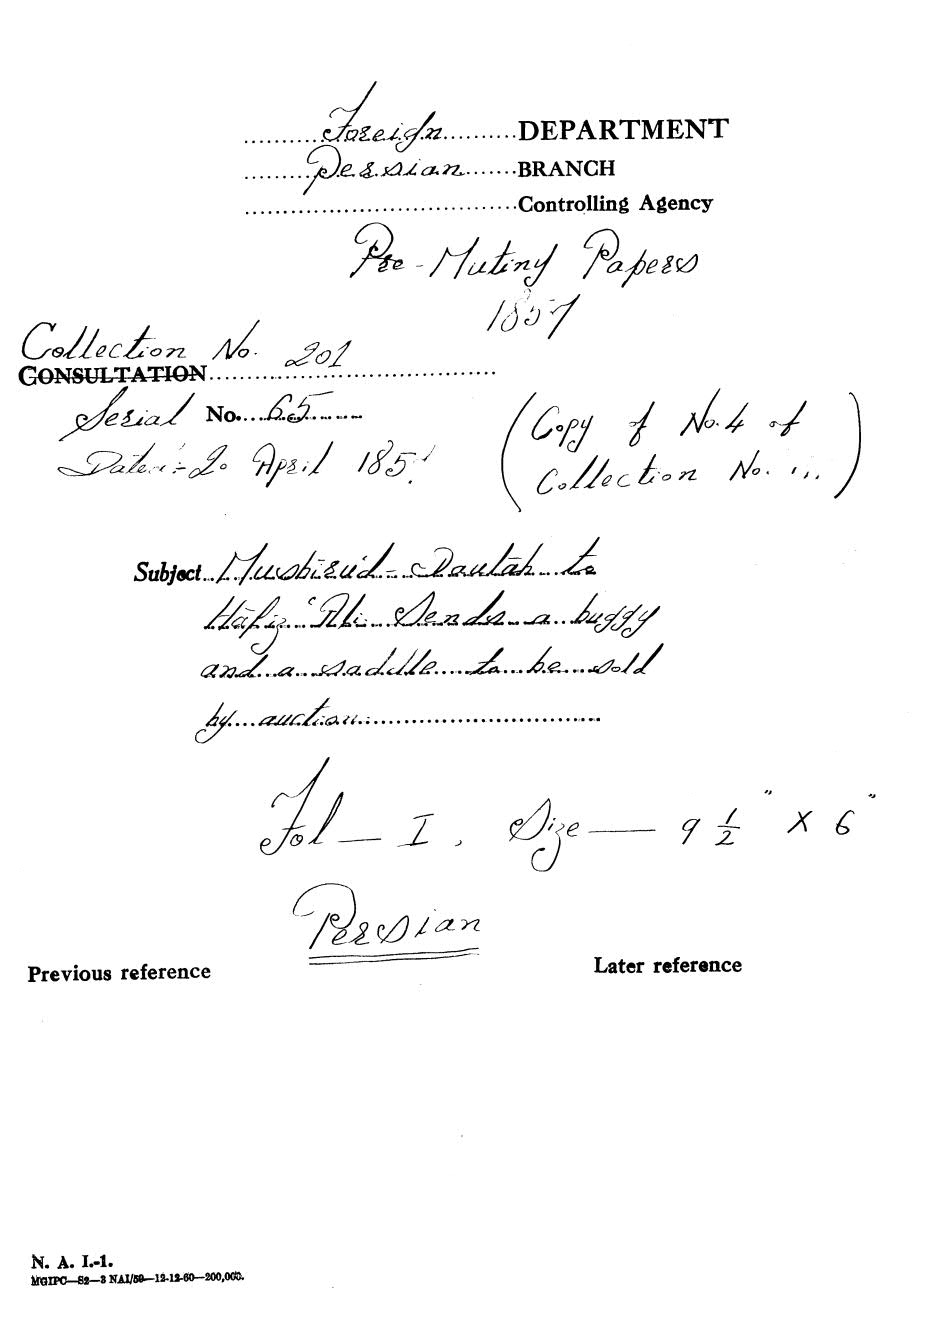 Foreign DEPARTMENT
Persian BRANCH
Controlling Agency
Pre-Mutiny Papers
1857
Collection No. 201
CONSULTATION
Serial No. 65
Date:- 2 April 185
(Copy of No. 4 of
Collection No. )
Subject Mushīrud-Daulah to
Hāfiz ‘Ali Sends a buggy
and a saddle to be sold
by auction
Fol — I, Size — 9 1/2" X 6"
Persian
Previous reference
Later reference
N. A. I.-1.
MGIPC—S2—3 NAI/59—12-12-60—200,000.